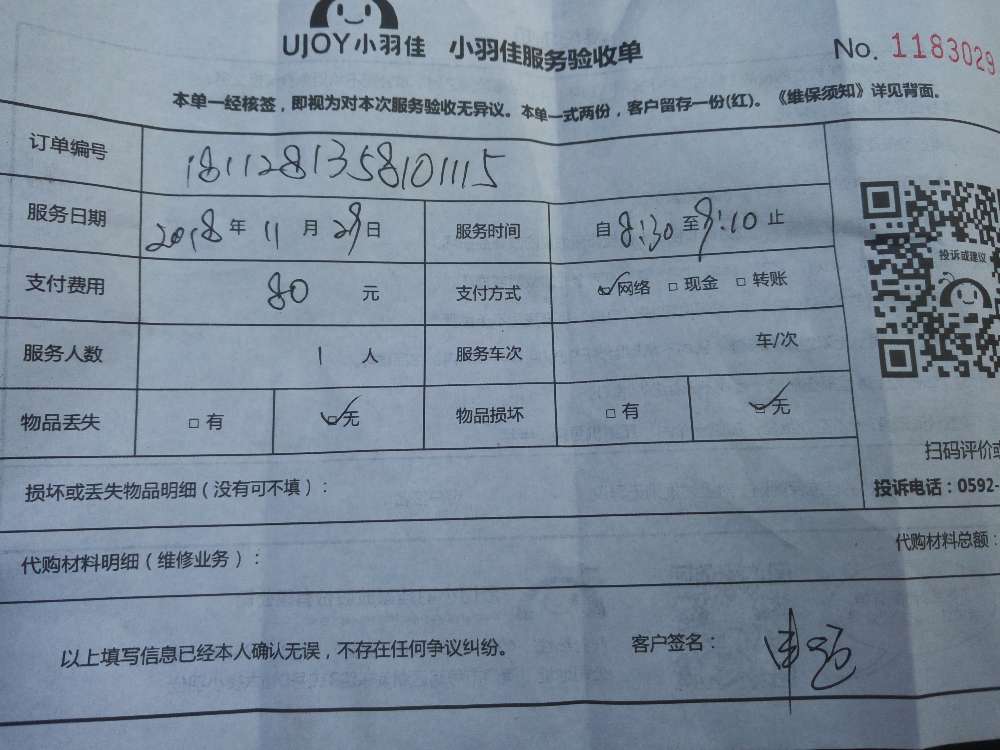 UJOY小羽佳 小羽佳服务验收单 No. 1183029
本单一经核签，即视为对本次服务验收无异议。本单一式两份，客户留存一份(红)。《维保须知》详见背面。
订单编号 1811281358101115
服务日期 2018年11月29日 服务时间 自8:30至9:10止
支付费用 80元 支付方式 网络 现金 转账
投诉或建议
服务人数 1人 服务车次 车/次
物品丢失 有 无 物品损坏 有 无
扫码评价或
投诉电话：0592-
损坏或丢失物品明细（没有可不填）：
代购材料明细（维修业务）： 代购材料总额：
以上填写信息已经本人确认无误，不存在任何争议纠纷。 客户签名：